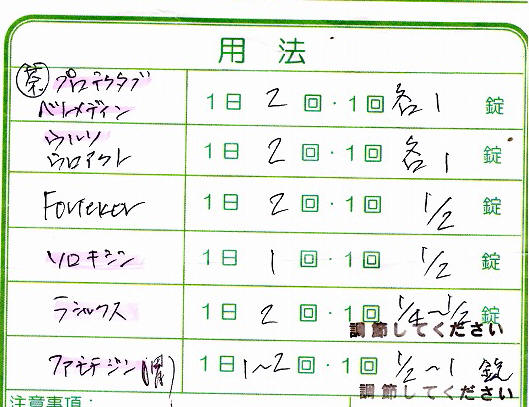 用法
茶 プロテクタブ
ベトメディン 1日 2 回・1回 各1 錠
ウルソ
ウロアクト 1日 2 回・1回 各1 錠
Fortekor 1日 2 回・1回 1/2 錠
ソロキシン 1日 1 回・1回 1/2 錠
ラシックス 1日 2 回・1回 1/4〜1/2 錠
調節してください
ファモチジン 1日 1〜2 回・1回 1/2〜1 錠
調節してください
注意事項: